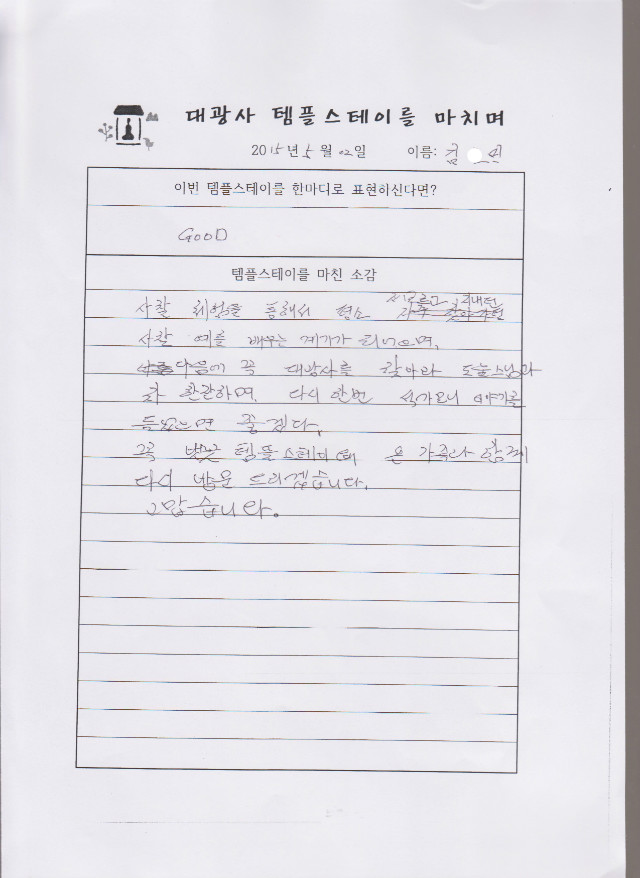 대광사 템플스테이를 마치며
2015년 5월 02일 이름: 김 민
이번 템플스테이를 한마디로 표현하신다면?
GOOD
템플스테이를 마친 소감
사찰 체험을 통해서 평소 지내던
사찰 예를 배우는 계기가 되었으며,
다음에 꼭 대광사를 찾아라 도늘스님과
차 한잔하며, 다시 한번 석가모니 이야기를
들었으면 좋겠다.
그꼭 템플스테이때 온 가족과 함께
다시 방문 드리겠습니다.
고맙습니다.